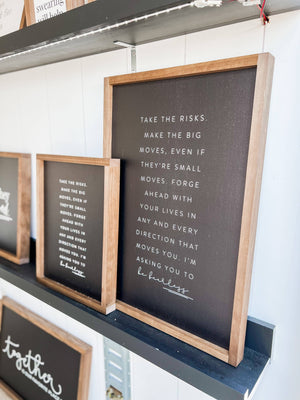 swearing
will help
TAKE THE RISKS.
MAKE THE BIG
MOVES, EVEN IF
THEY'RE SMALL
MOVES. FORGE
AHEAD WITH
YOUR LIVES IN
ANY AND EVERY
DIRECTION THAT
MOVES YOU. I'M
ASKING YOU TO
be fearless
TAKE THE RISKS.
MAKE THE BIG
MOVES, EVEN IF
THEY'RE SMALL
MOVES. FORGE
AHEAD WITH
YOUR LIVES IN
ANY AND EVERY
DIRECTION THAT
MOVES YOU. I'M
ASKING YOU TO
be fearless
together